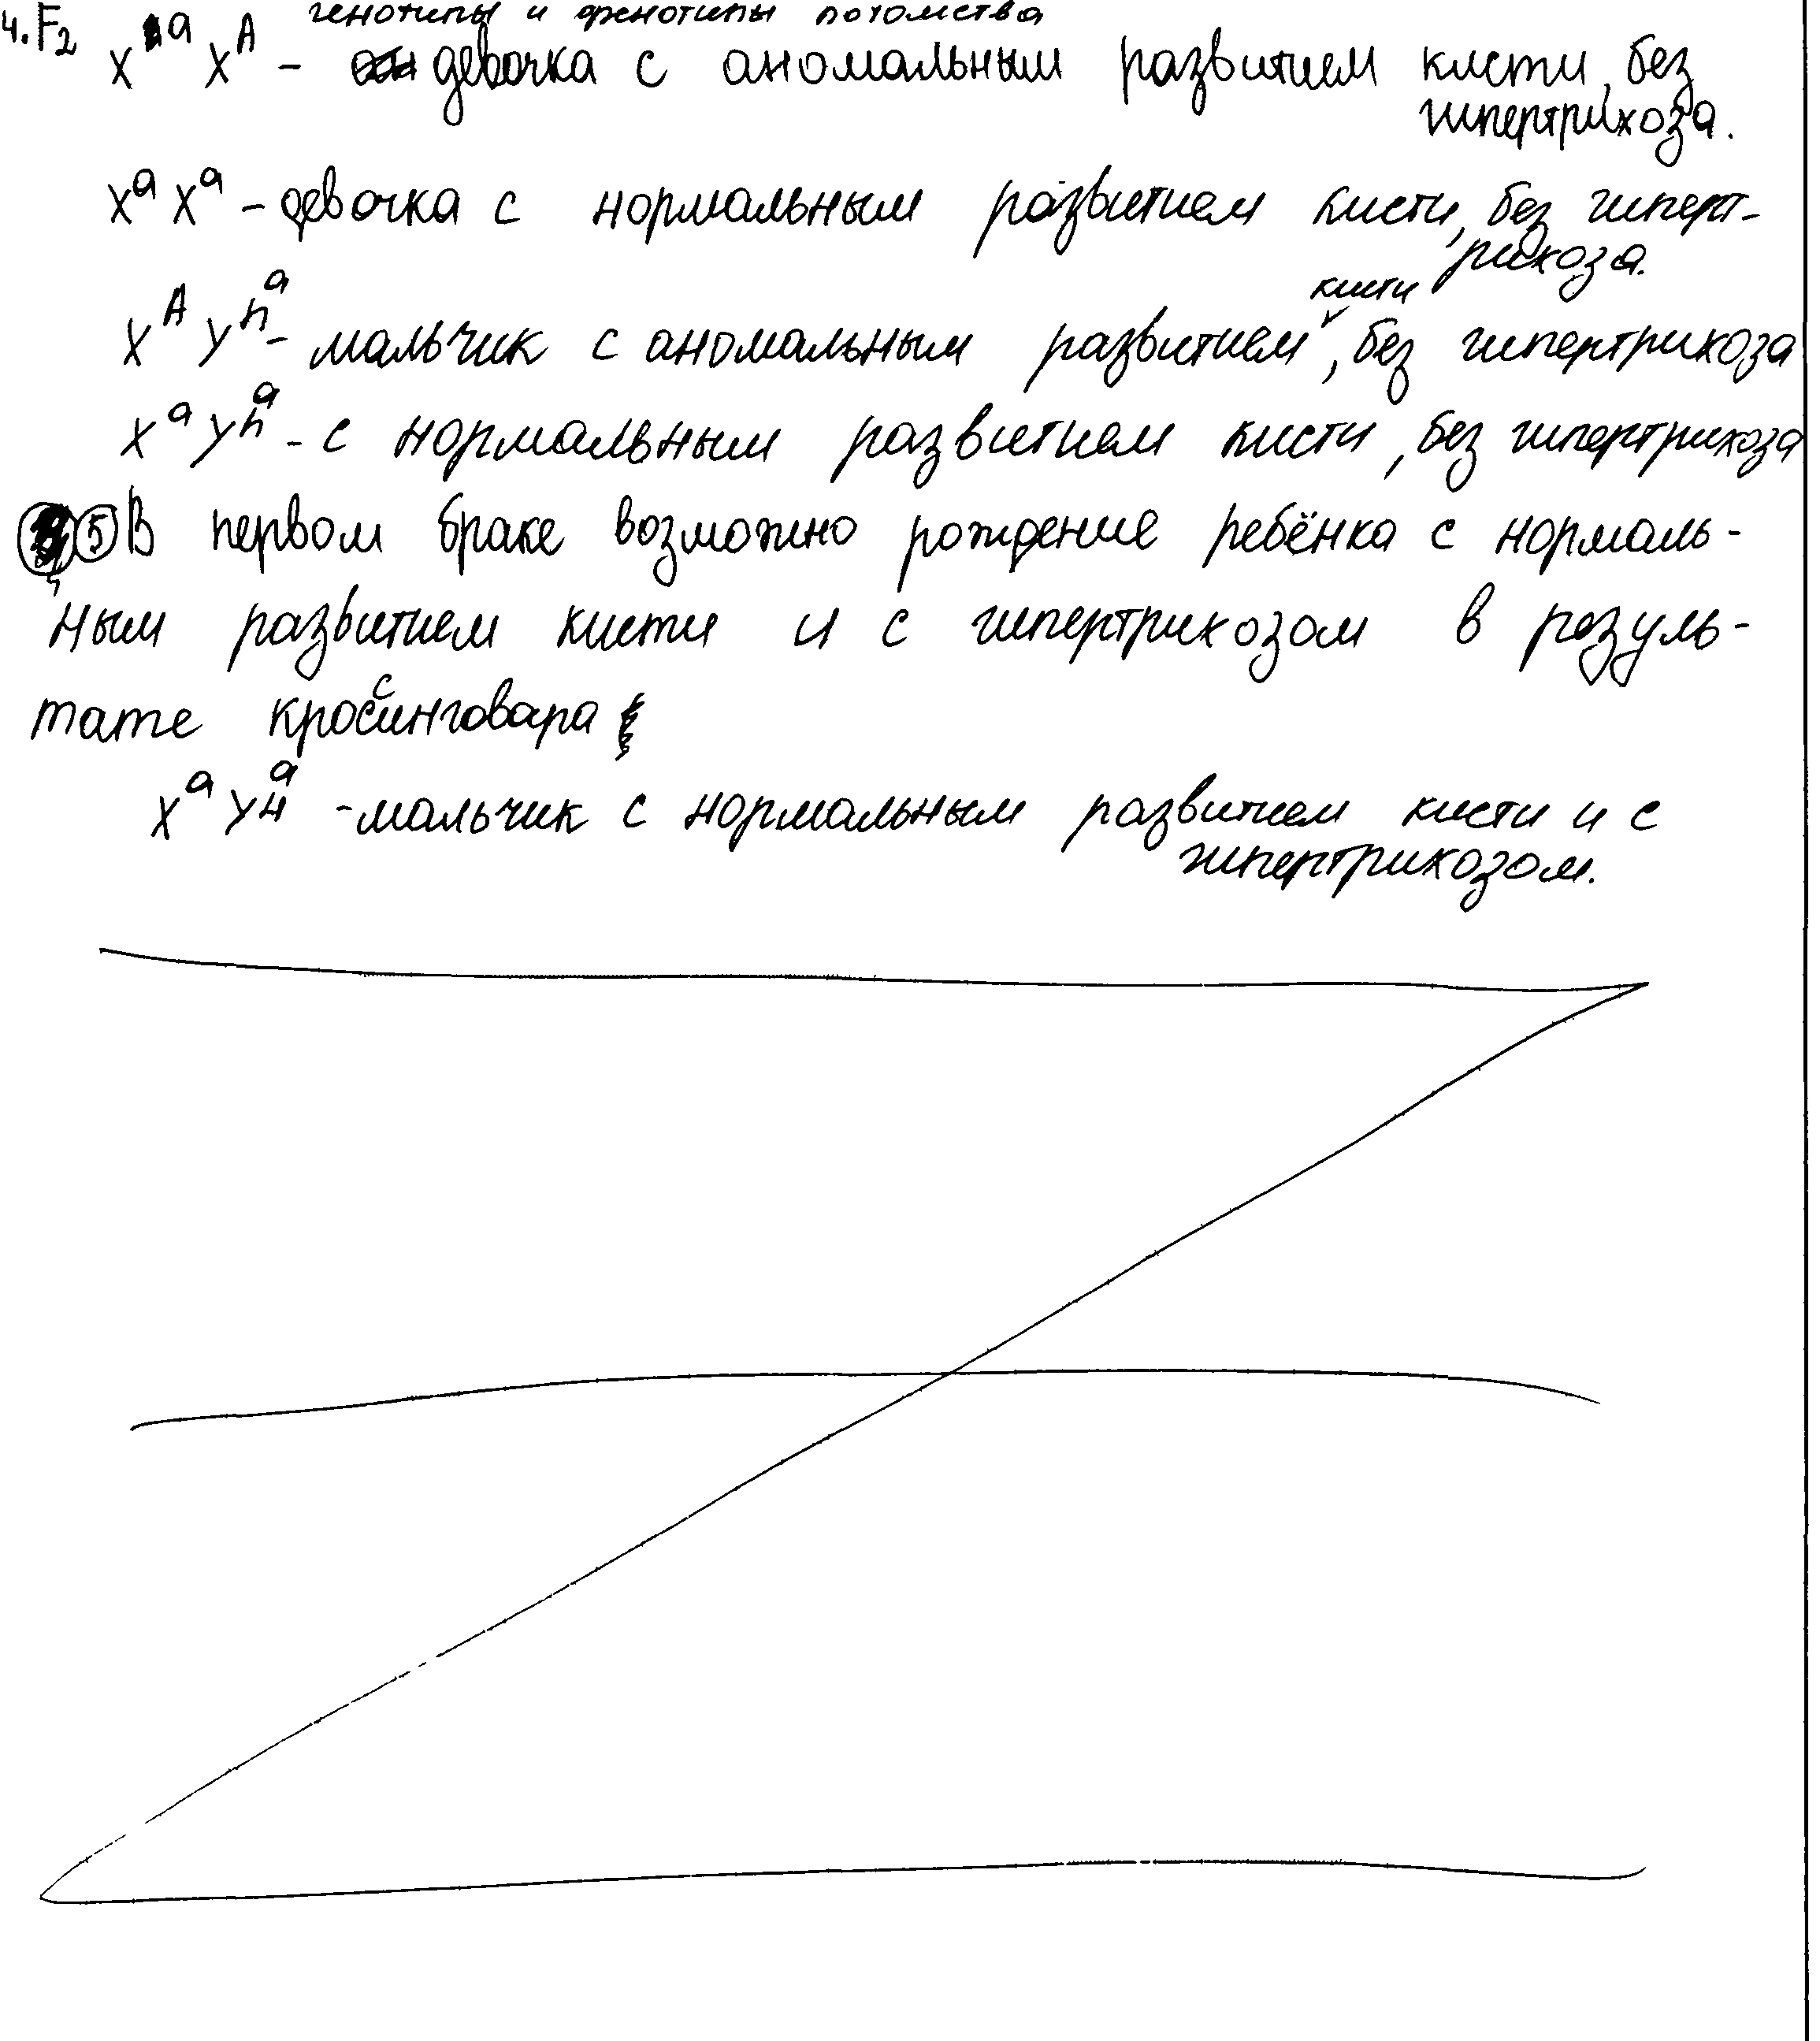 4. F₂ генотипы и фенотипы потомства
Xᵃ Xᴬ - девочка с аномальным развитием кисти, без
гипертрихоза.
Xᵃ Xᵃ - девочка с нормальным развитием кисти, без гиперт-
рихоза.
Xᴬ Yʰᵃ - мальчик с аномальным развитием кисти, без гипертрихоза
Xᵃ Yʰᵃ - с нормальным развитием кисти, без гипертрихоза
5 В первом браке возможно рождение ребёнка с нормаль-
ным развитием кисти и с гипертрихозом в резуль-
тате кроссинговара
Xᵃ Yᴴᵃ - мальчик с нормальным развитием кисти и с
гипертрихозом.